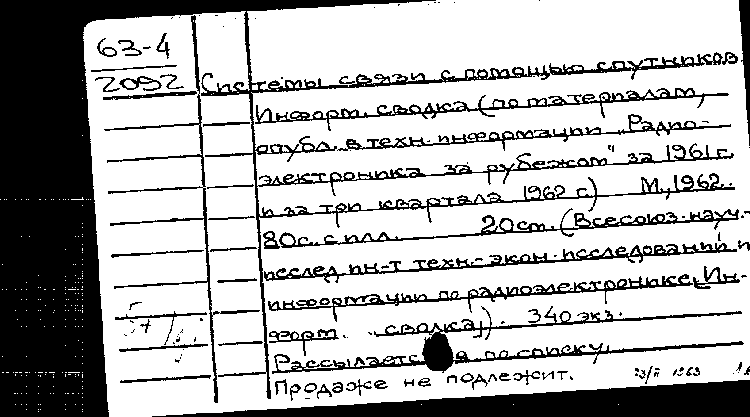 63-4
2092 Системы связи с помощью спутников.
Информ. сводка (по материалам,
опубл. в техн. информации "Радио-
электроника за рубежом" за 1961 г.
и за три квартала 1962 г.) М., 1962.
80 с. с илл. 20 см. (Всесоюз. науч.-
исслед. ин-т техн.-экон. исследований и
информации по радиоэлектронике. Ин-
форм. сводка). 340 экз.
Рассылается по списку.
Продаже не подлежит. 1963